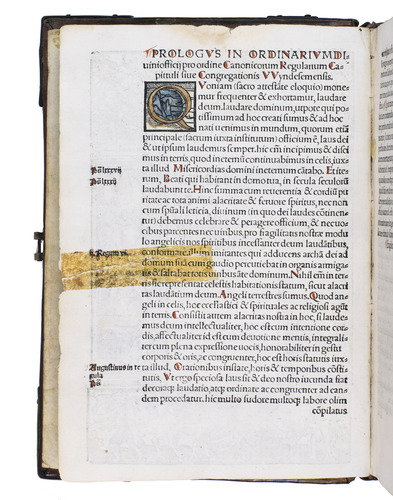 PROLOGVS IN ORDINARIVM DI
uini officij pro ordine Canonicorum Regularium Ca
pituli siue Congregationis VVyndesemensis.
QVoniam (sacro attestãte eloquio) mone
mur frequenter & exhortamur, laudare
deum. laudare dominum, utpote qui po
tissimum ad hoc creati sumus & ad hoc
nati uenimus in mundum, quorum etiã
principale (sacrum iuxta institutum) officium ẽ, laus dei
& ut ipsum laudemus semper. hic em̃ incipimus & dici
mus in terris, quod in eternũ continuabimus in celis, iux
ta illud Misericordias domini in eternum cãtabo. Et ite
rum, Beati qui habitant in domo tua, in secula seculorũ
laudabunt te. Hinc summa cum reuerentia & cordiũ pu
ritate ac tota animi alacritate & feruore spiritus, nec non
cum spũali leticia, diuinum (in quo dei laudes cõtinen
tur) debemus celebrare & peragere officium, & nec uo
cibus parcentes nec uiribus, pro fragilitatis nostræ modu
lo angelicis nos spiritibus incessanter deum laudãtibus,
conformare. illum imitantes qui adducens archã dei ad
domum suã cum gaudio percutiebat in organis armiga
tis & saltabat totis uiribus ãte dominum. Nihil em̃ in ter
ris sic representat celestis habitationis statum, sicut alacri
tas laudãtium deum. Angeli terrestres sumus. Quod an
geli in celis, hoc ecclesiasticæ & spirituales ac religiosi agũt
in terris. Consistit autem alacritas nostra in hoc, si laude
mus deum intellectualiter, hoc est cum intentione cor
dis, affectualiter id est cum deuotione mentis, integrali
ter cum plena expressione uocis, honorabiliter in gestu
corporis & oris, ac congruenter, hoc est horis statutis iux
ta illud. Orationibus instate, horis & temporibus cõsti
tutis. Vtergo speciosa laus sit & deo nostro iucunda fiat
decoraqꝫ laudatio, atqꝫ ordinate ac congruenter ad ean
dem procedatur. hic multo sudore multoqꝫ labore olim
cõpilatus
Pṡ. lxxxviij
Pṡ. lxxxij
ij. Regum vi.
Augustinus in re
gula